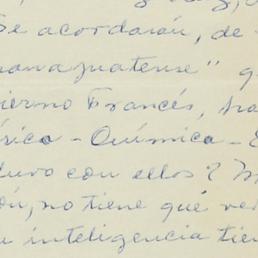 Se acordarán, de
anajuatense" q
ierno Francés, ha
rico - Química - E
tuvo con ellos? M
ón, no tiene qué ve
u inteligencia tien